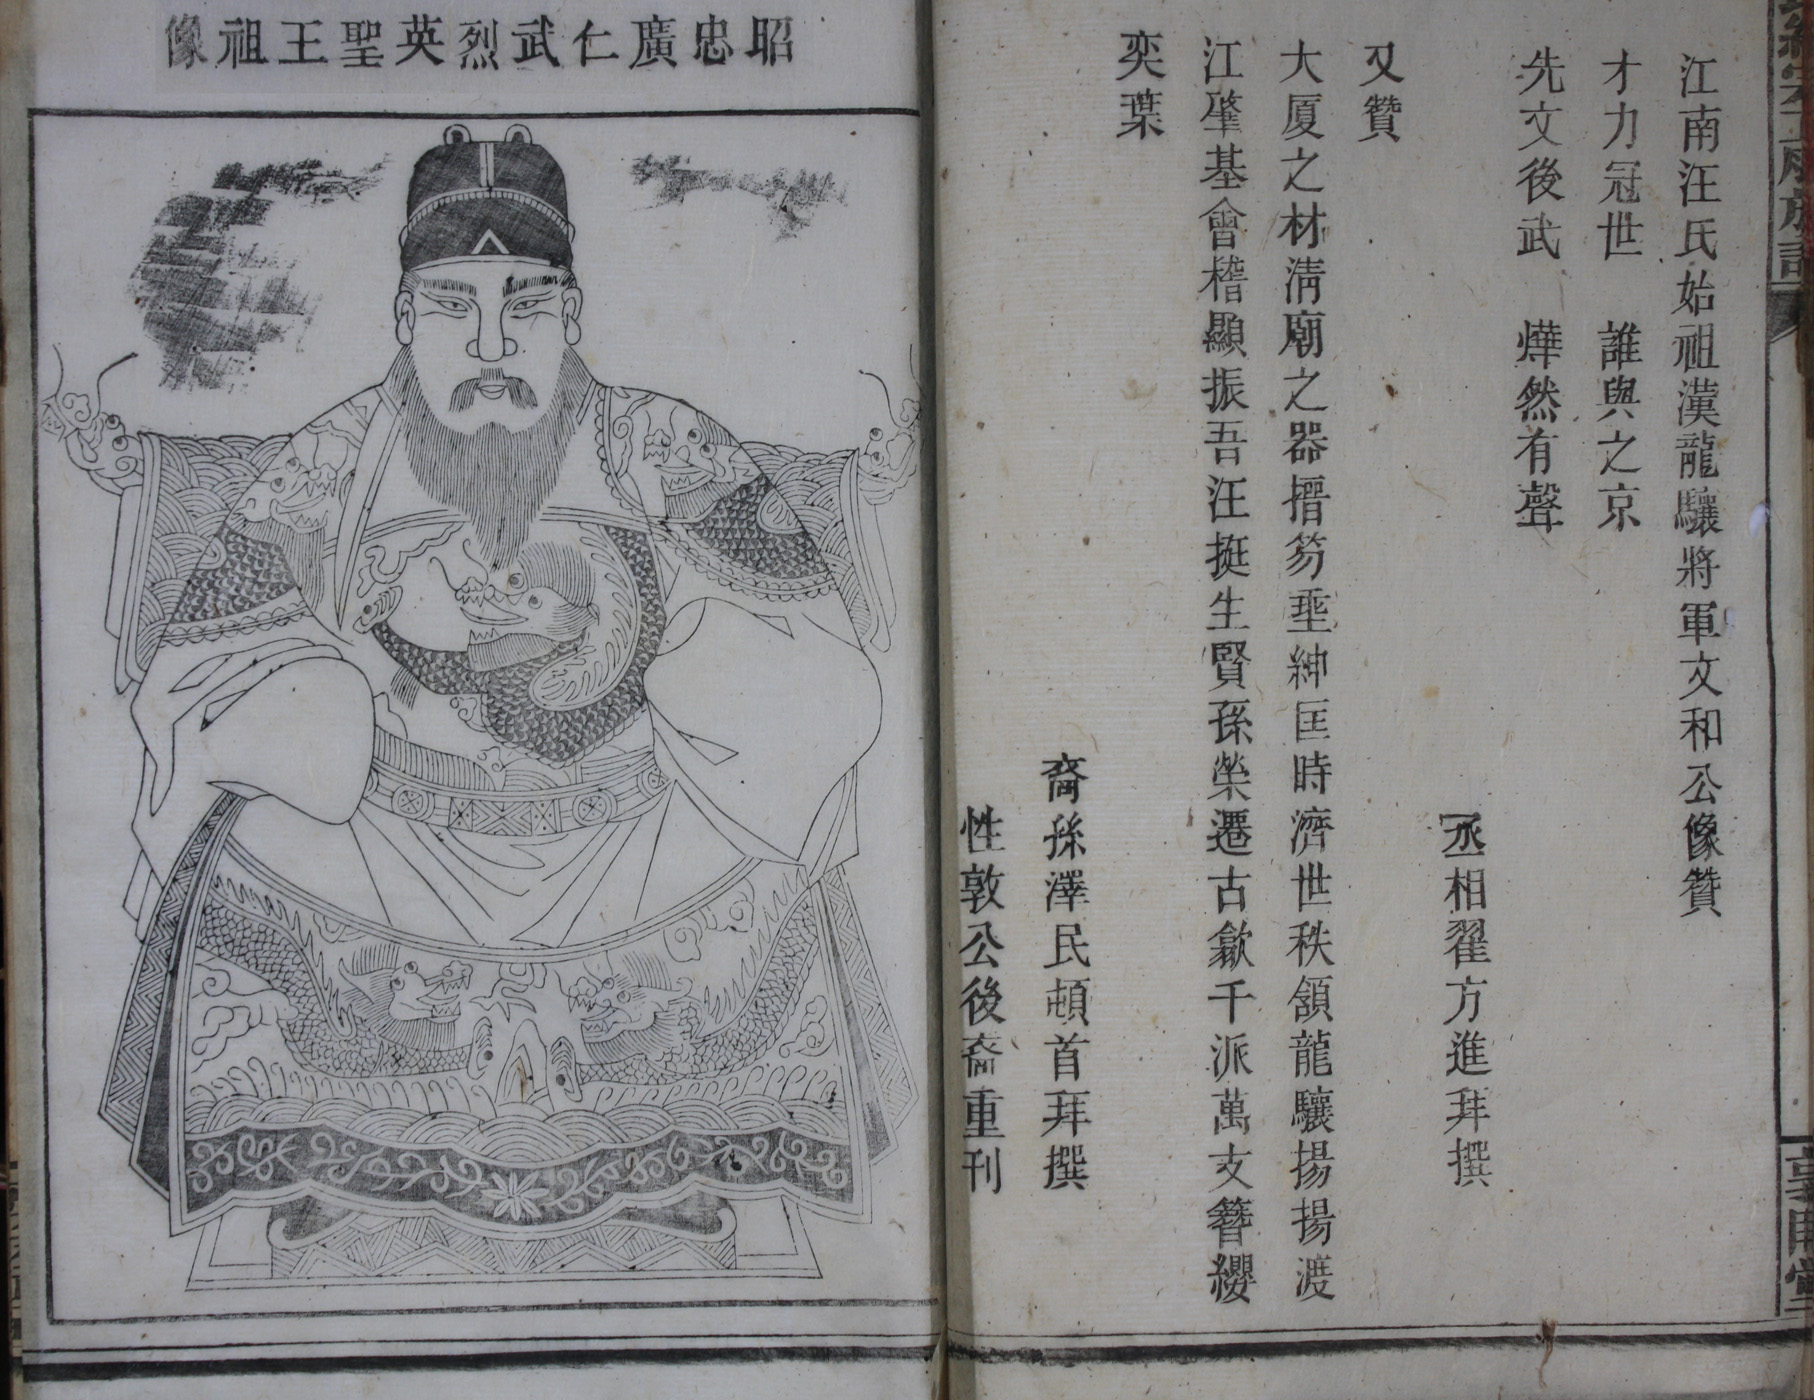 江南汪氏始祖漢龍驤將軍文和公像贊
才力冠世　誰與之京
先文後武　燁然有聲
丞相翟方進拜撰
又贊
大厦之材清廟之器搢笏垂紳匡時濟世秩頷龍驤揚揚渡
江肇基會稽顯振吾汪挺生賢孫榮遷古歙千派萬支簪纓
奕葉
裔孫澤民頓首拜撰
性敦公後裔重刊
昭忠廣仁武烈英聖王祖像